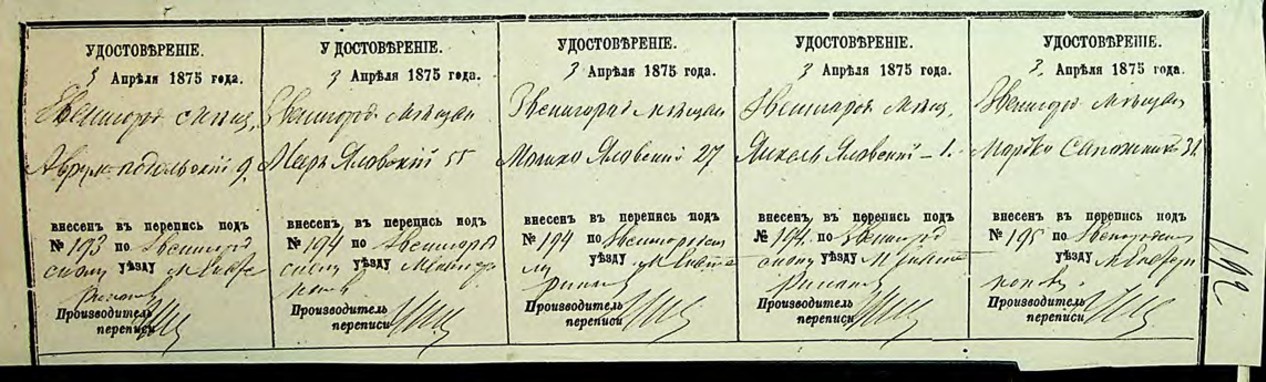 УДОСТОВѢРЕНІЕ.
3 Апрѣля 1875 года.
Звенигород мѣщ.
Аврум Подольский 9.
внесенъ въ перепись подъ
№ 193 по Звенигород
скому уѣзду
Производитель
переписи
УДОСТОВѢРЕНІЕ.
3 Апрѣля 1875 года.
Звенигород мѣщан
Меер Яловский 55
внесенъ въ перепись подъ
№ 194 по Звенигород
скому уѣзду
Производитель
переписи
УДОСТОВѢРЕНІЕ.
3 Апрѣля 1875 года.
Звенигород мѣщан
Мошко Яловский 27
внесенъ въ перепись подъ
№ 194 по Звенигородско
му уѣзду
Производитель
переписи
УДОСТОВѢРЕНІЕ.
3 Апрѣля 1875 года.
Звенигород мѣщ
Янкель Яловский – 1.
внесенъ въ перепись подъ
№ 194. по Звенигород
скому уѣзду
Производитель
переписи
УДОСТОВѢРЕНІЕ.
3. Апрѣля 1875 года.
Звенигород мѣщан
Мордко Сапожник 31.
внесенъ въ перепись подъ
№ 195 по
уѣзду
Производитель
переписи
192